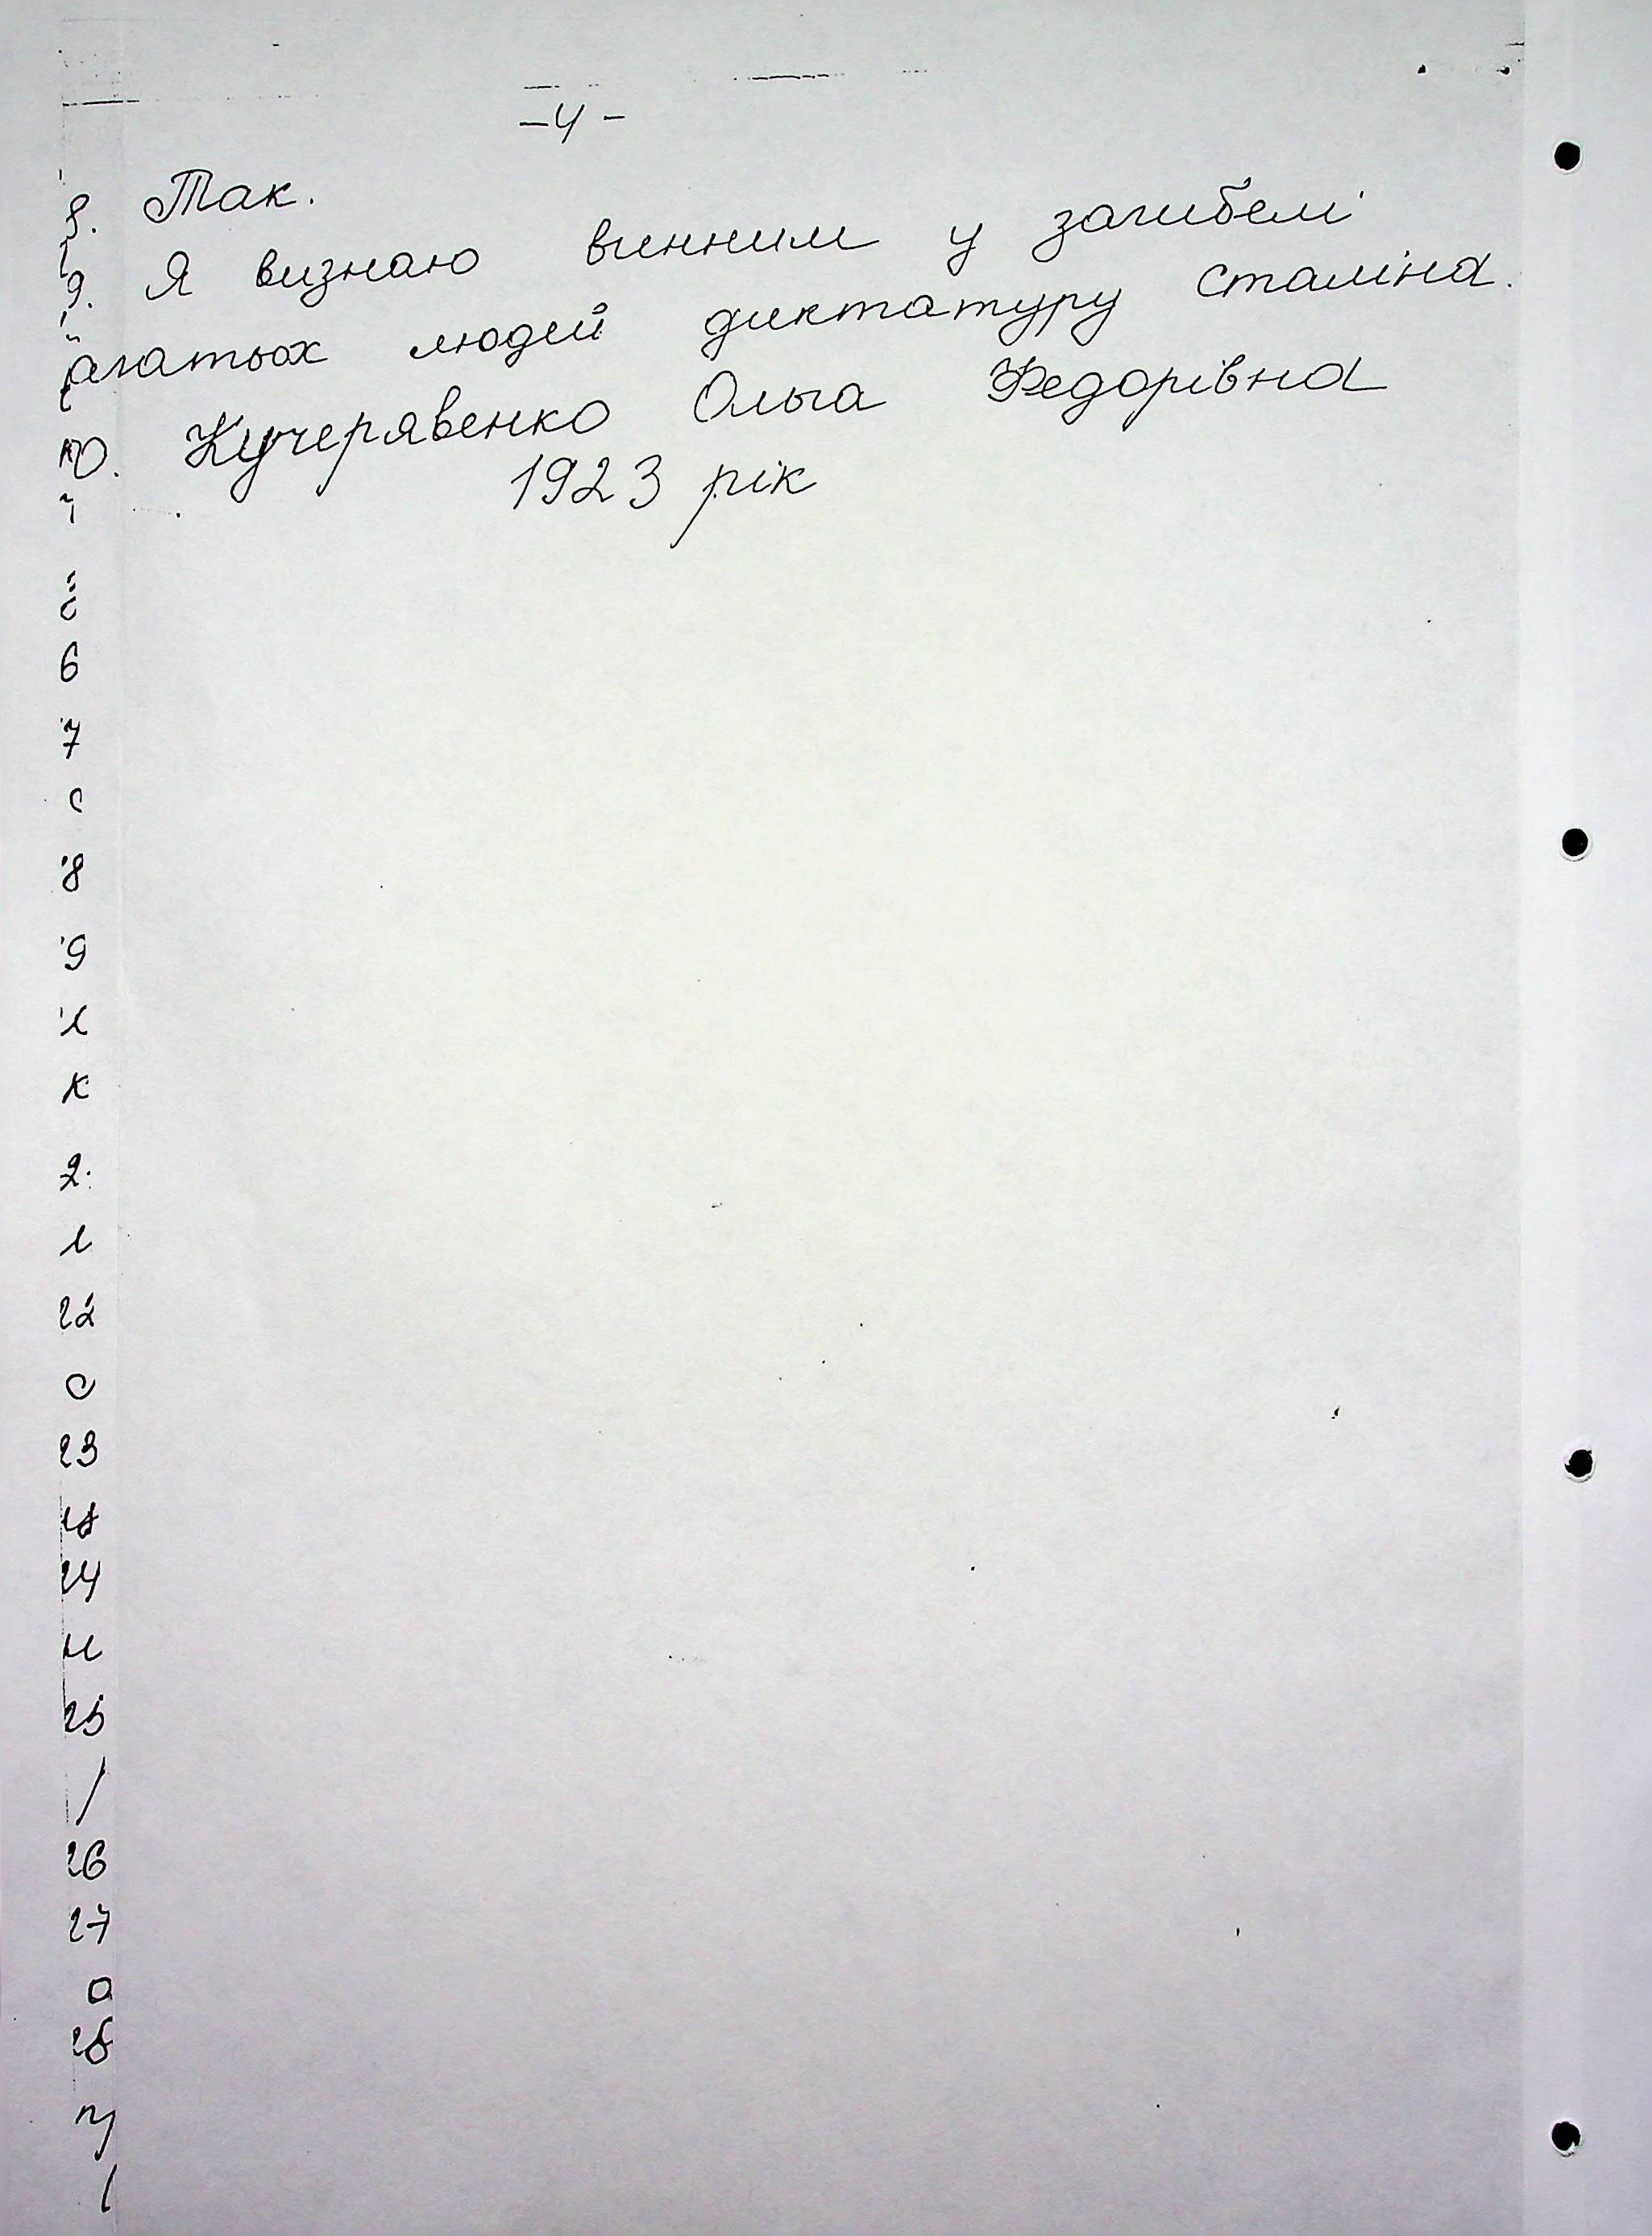 -4-
8. Так.
9. Я визнаю винним у загибелі
агатьох людей диктатуру Сталіна.
10. Кучерявенко Ольга Федорівна
1923 рік
6
7
с
8
9
к
2.
22
с
23
24
и
25
/
26
27
о
28